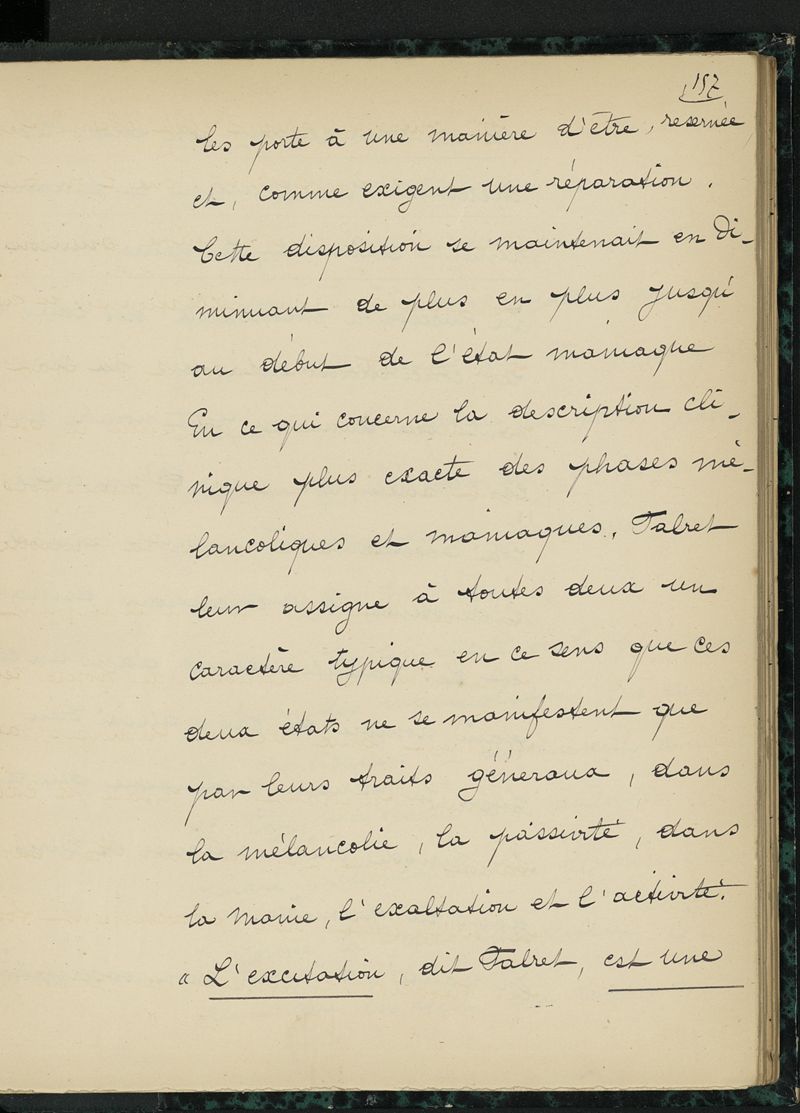 157
les porte à une manière d'être, reservée
et, comme exigent une réparation.
Cette disposition se maintenait en di-
minuant de plus en plus jusqu'
au début de l'état maniaque
En ce qui concerne la description cli-
nique plus exacte des phases mé-
lancoliques et maniaques, Falret
leur assigne à toutes deux un
caractère typique en ce sens que ces
deux états ne se manifestent que
par leurs traits géneraux, dans
la mélancolie, la passivité, dans
la manie, l'exaltation et l'activité.
« L'excitation, dit Falret, est une